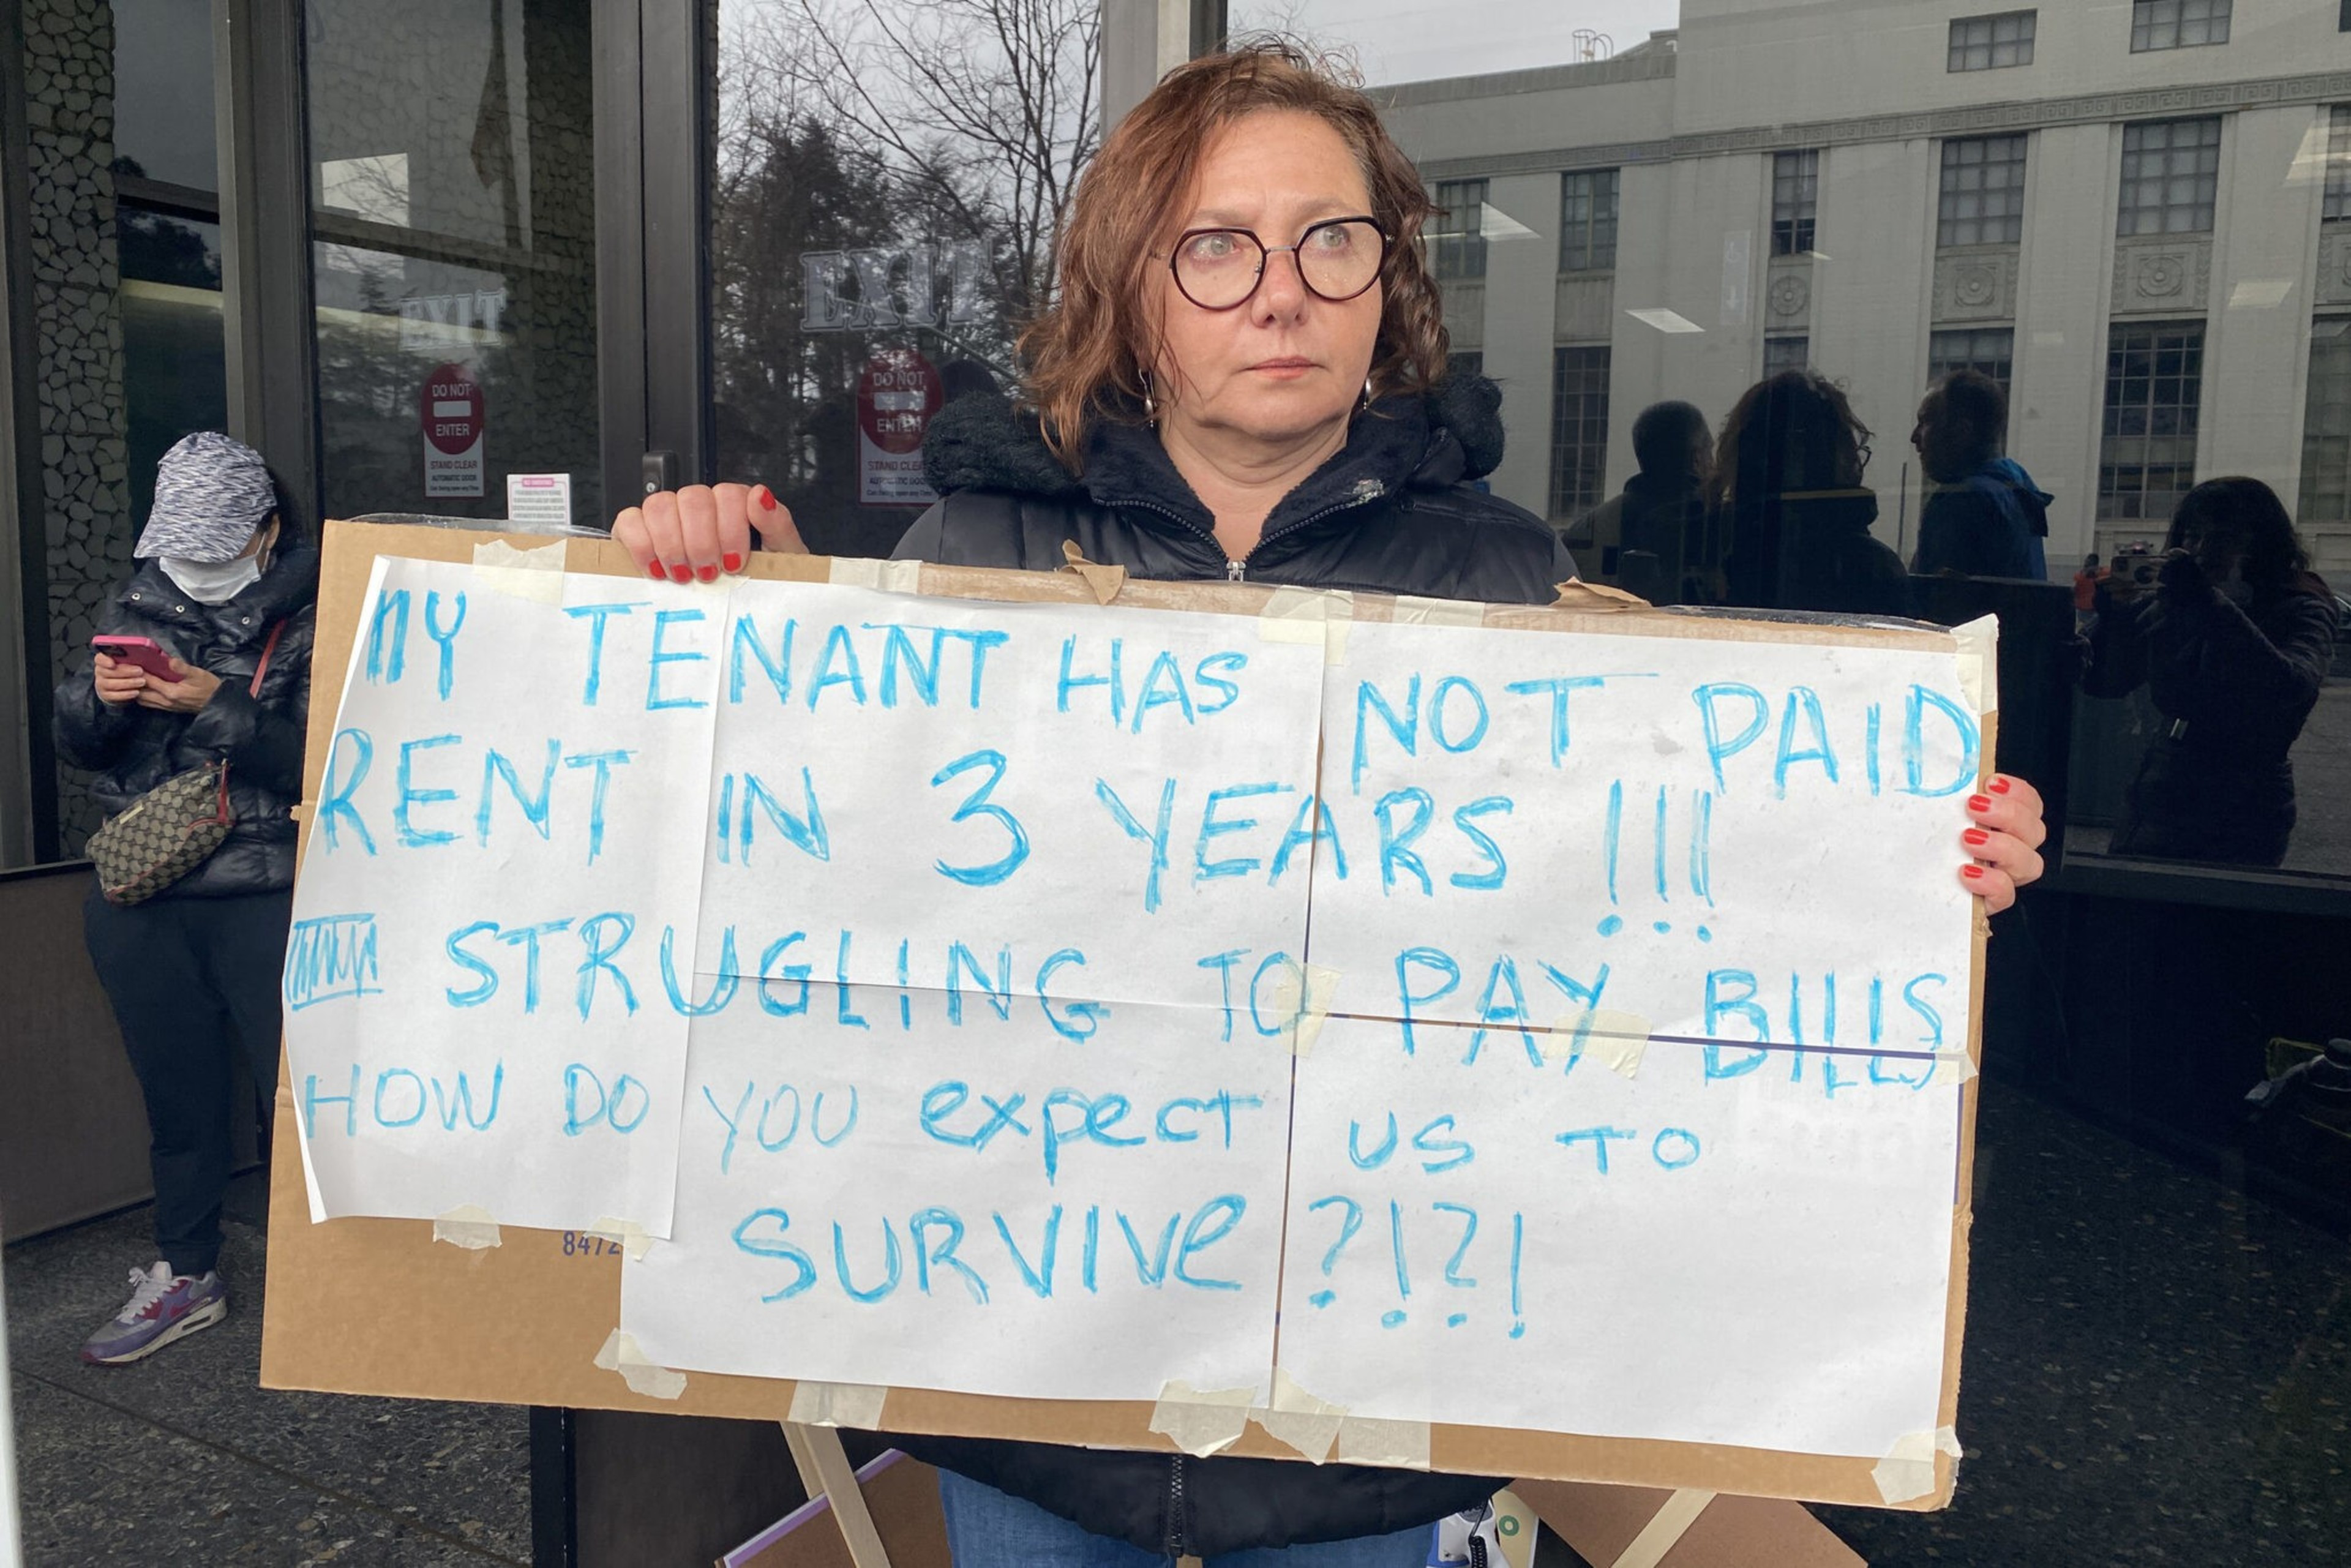 EXIT
EXIT
DO NOT
ENTER
STAND CLEAR
AUTOMATIC DOOR
DO NOT
ENTER
STAND CLEAR
MY TENANT HAS NOT PAID
RENT IN 3 YEARS !!!
STRUGLING TO PAY BILLS
HOW DO YOU expect US TO
SURVIVe ?!?!
8472